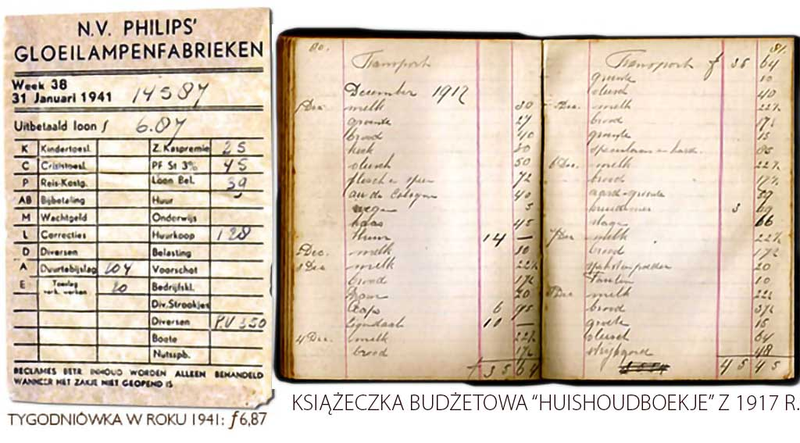 N.V. PHILIPS'
GLOEILAMPENFABRIEKEN
Week 38
31 Januari 1941 14587
Uitbetaald loon f 6.87
K Kindertoesl. Z.Kaspremie 25
C Crisistoesl. PF St 3% 45
P Reis-Kostg. Loon Bel. 39
AB Bijbetaling Huur
M Wachtgeld Onderwijs
L Correcties Huurkoop 128
D Diversen Belasting
A Duurtebijslag 104 Voorschot
E Toeslag verk. werken 20 Bedrijfskl.
Div. Strookjes
Diversen P.V 350
Boete
Nutsspb.
RECLAMES BETR. INHOUD WORDEN ALLEEN BEHANDELD
WANNEER HET ZAKJE NIET GEOPEND IS
TYGODNIÓWKA W ROKU 1941: ƒ6,87
80.
Transport
December 1917
1 Dec. melk 30
groente 27
brood 40
koek 30
vleesch 50
72
eau de Cologne 40
5
kaas 45
Huur 14 —
Dec. melk 30
3 Dec melk 22½
brood 17½
20
6 75
10 —
4 Dec. melk 22½
brood 17½
f 35 64
81.
Transport f 35 64
groente 10
vleesch 40
5 Dec. melk 22½
brood 17½
groente 15
85
6 Dec melk 22½
brood 17½
29
3 69
66
7 Dec melk 22½
brood 17½
20
10
8 Dec melk 22½
brood 37½
groente 15
vleesch 64
strijkgoed 48
45 45
KSIĄŻECZKA BUDŻETOWA “HUISHOUDBOEKJE” Z 1917 R.